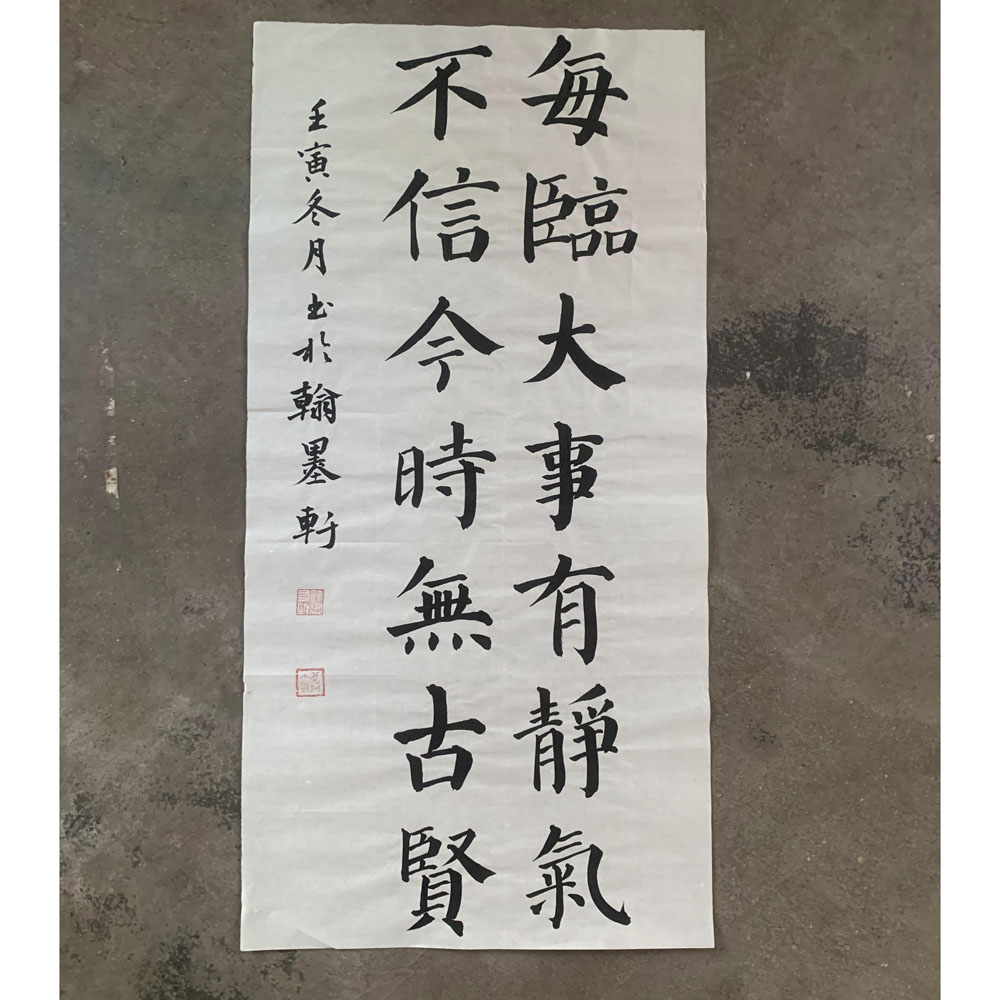 每臨大事有靜氣
不信今時無古賢
壬寅冬月书於翰墨軒